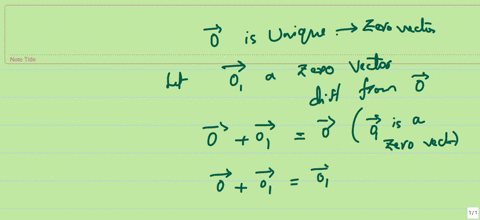 0⃗ is Unique → Zero vector
Note Title
Let 0⃗₁ a zero vector
diff from 0⃗
0⃗ + 0⃗₁ = 0⃗ (0⃗₁ is a
zero vector)
0⃗ + 0⃗₁ = 0⃗₁
1/1